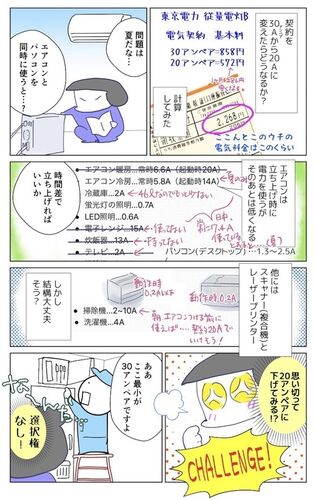 契約を
30Aから20Aに
変えたらどうなるか?
東京電力 従量電灯B
電気契約 基本料
30アンペア=858円
20アンペア=572円
2,268円
計算
してみた
ここんとこのウチの
電気料金はこのくらい
問題は
夏だな…
エアコンと
パソコンを
同時に使うと…?
エアコンは
立ち上げ時に
電力を使うが
そのあとは低くなる
エアコン暖房…常時6.6A(起動時20A)
エアコン冷房…常時5.8A(起動時14A)
冷蔵庫…2A
蛍光灯の照明…0.7A
LED照明…0.6A
電子レンジ…15A
炊飯器…13A
テレビ…2A
パソコン(デスクトップ)…1.3〜2.5A
時間差で
立ち上げれば
いいか
他には
スキャナー(複合機)と
レーザープリンター
動作時
0.2A
掃除機…2~10A
洗濯機…4A
しかし
結構大丈夫
そう?
思い切って
20アンペアに
下げてみる!?
CHALLENGE!
ああ
ここ最小が
30アンペアですよ
選択権
なし!